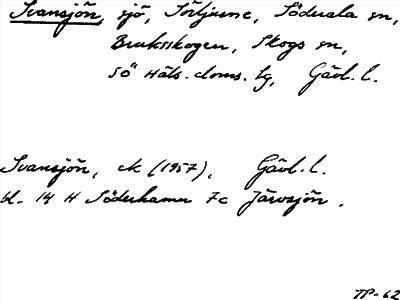 Svansjön, sjö, Sörljusne, Söderala sn,
Bruksskogen, Skogs sn,
Sö Häls. doms. tg, Gävl. l.
Svansjön, ek (1957), Gävl. l.
bl. 14 H Söderhamn 7c Järvsjön.
TP-62